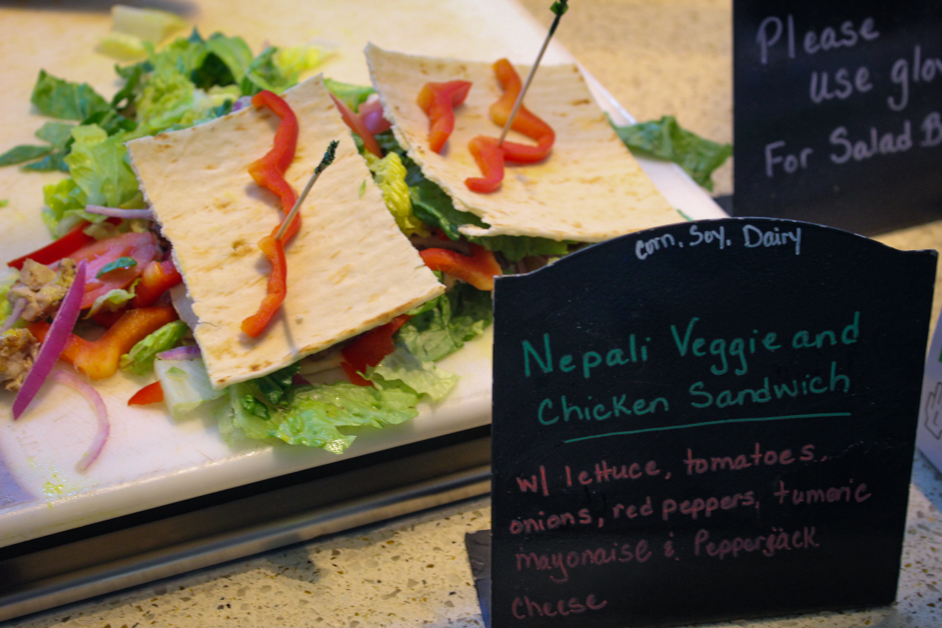 Please
use glov
For Salad B
corn, Soy, Dairy
Nepali Veggie and
Chicken Sandwich
w/ lettuce, tomatoes,
onions, red peppers, tumeric
mayonaise & Pepperjack
cheese